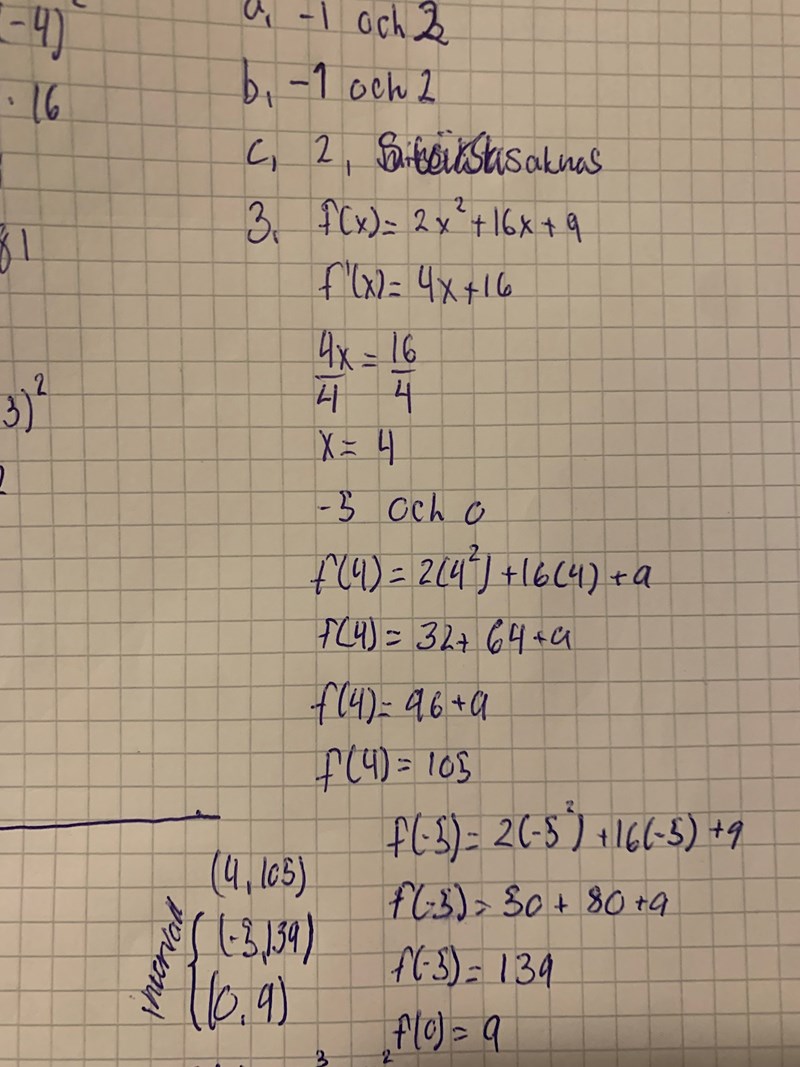 (-4)
· 16
81
3)²
a, -1 och 2
b, -1 och 2
c, 2, saknas
3, f(x)= 2x²+16x+9
f'(x)= 4x+16
4x/4 = 16/4
x= 4
-5 och 0
f(4)= 2(4²)+16(4)+9
f(4)= 32+ 64+9
f(4)= 96+9
f(4)= 105
f(-5)= 2(-5²)+16(-5)+9
f(-5)= 50+ 80+9
f(-5)= 139
f(0)= 9
(4,105)
intervall
(-5,139)
(0,9)